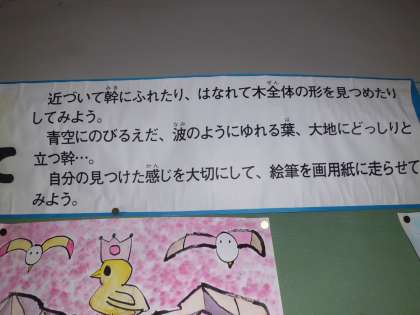 近づいて幹にふれたり、はなれて木全体の形を見つめたり
してみよう。
青空にのびるえだ、波のようにゆれる葉、大地にどっしりと
立つ幹…。
自分の見つけた感じを大切にして、絵筆を画用紙に走らせて
みよう。